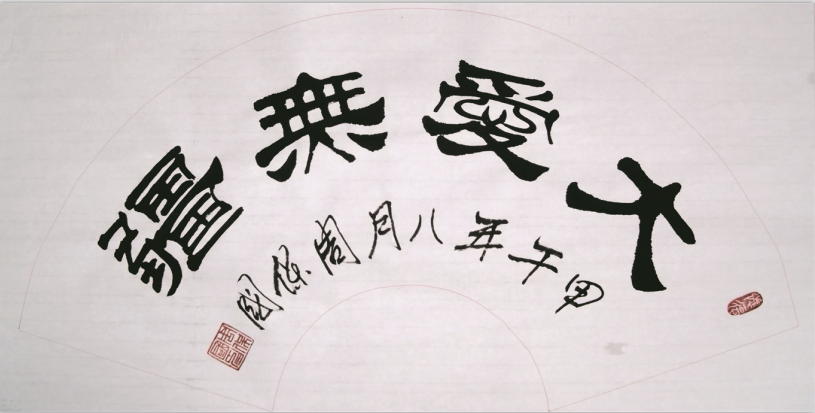 大愛無疆
甲午年八月周保國